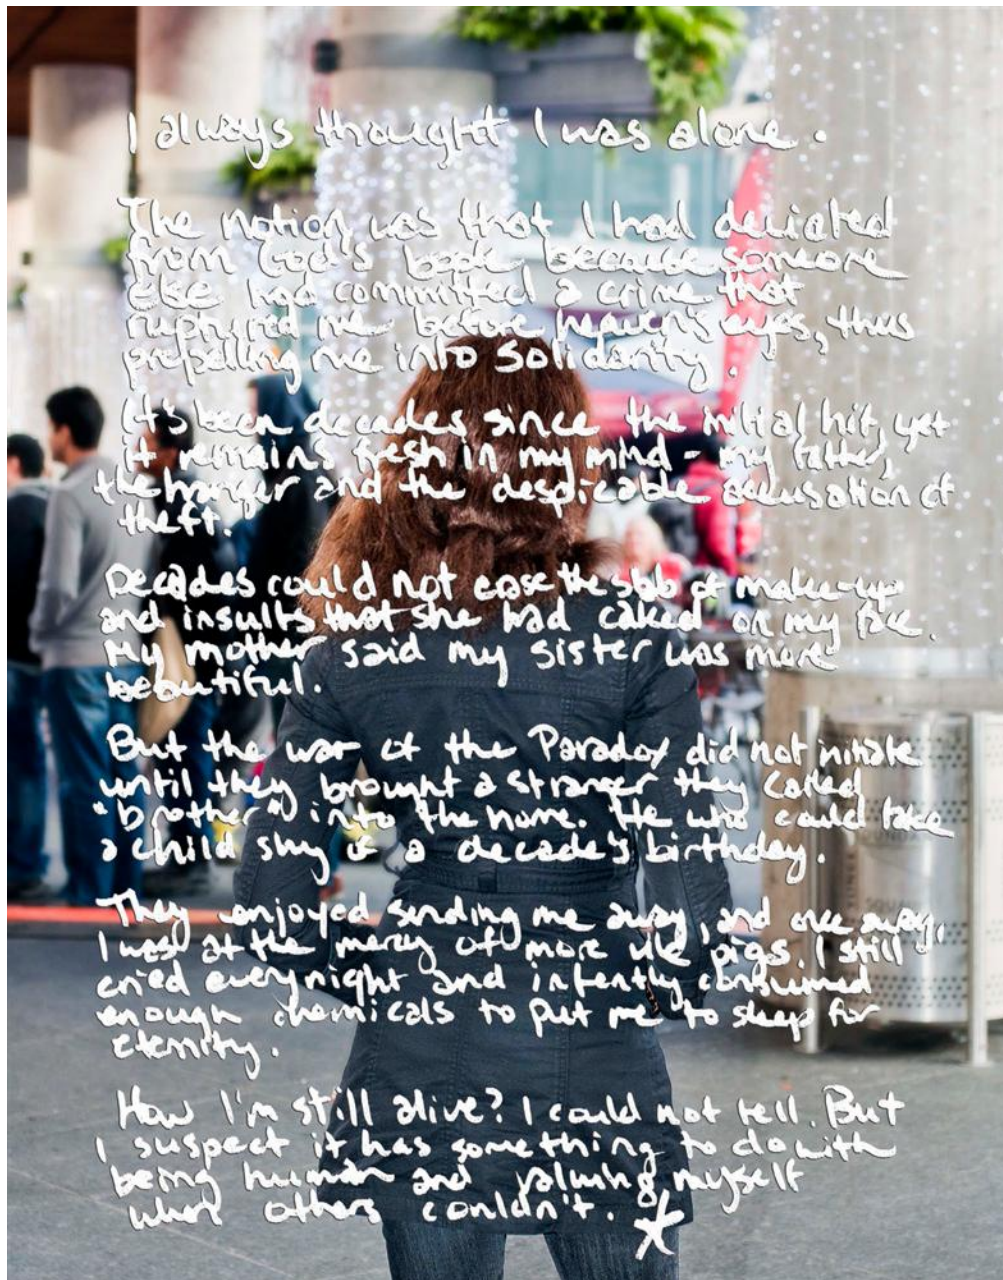 I always thought I was alone.
The notion was that I had deviated
from God's book, because someone
else had committed a crime that
ruptured me before heaven's eyes, thus
propelling me into solidarity.
It's been decades since the initial hit, yet
it remains fresh in my mind - my father,
the hanger and the despicable accusation of
theft.
Decades could not ease the stab of make-up
and insults that she had caked on my face.
My mother said my sister was more
beautiful.
But the war of the Paradox did not initiate
until they brought a stranger they called
"brother" into the home. He who could take
a child shy of a decade's birthday.
They enjoyed sending me away, and once away,
I was at the mercy of more vile pigs. I still
cried every night and intently consumed
enough chemicals to put me to sleep for
eternity.
How I'm still alive? I could not tell. But
I suspect it has something to do with
being human and valuing myself
when others couldn't.